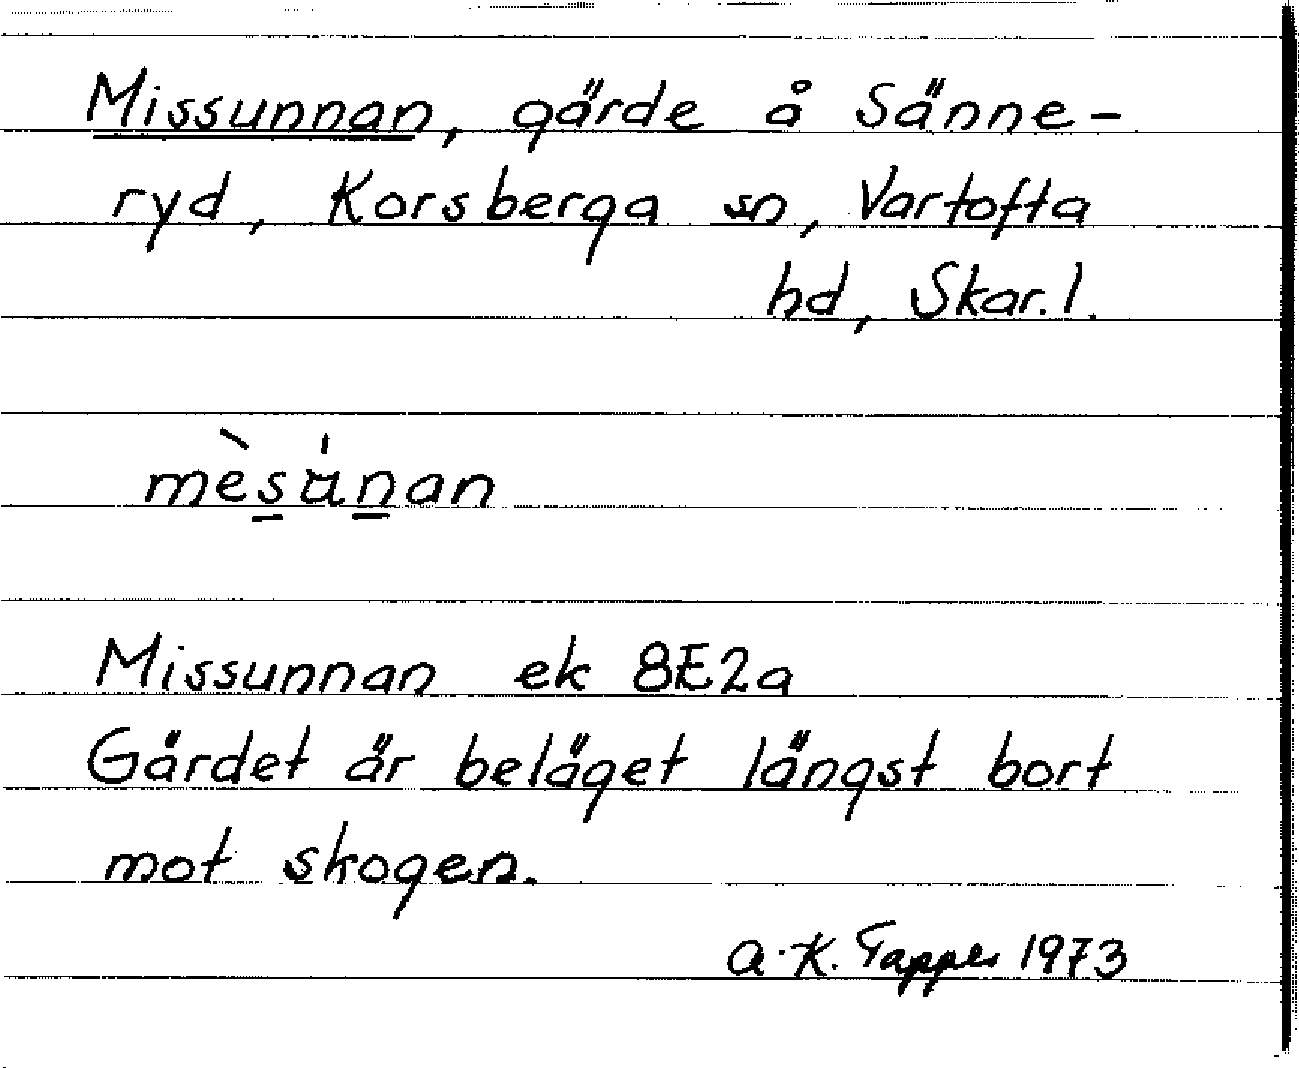 Missunnan, gärde å Sänne-
ryd, Korsberga sn, Vartofta
hd, Skar. l.
Missunnan ek 8E2a
Gärdet är beläget längst bort
mot skogen.
A-K. Tapper 1973